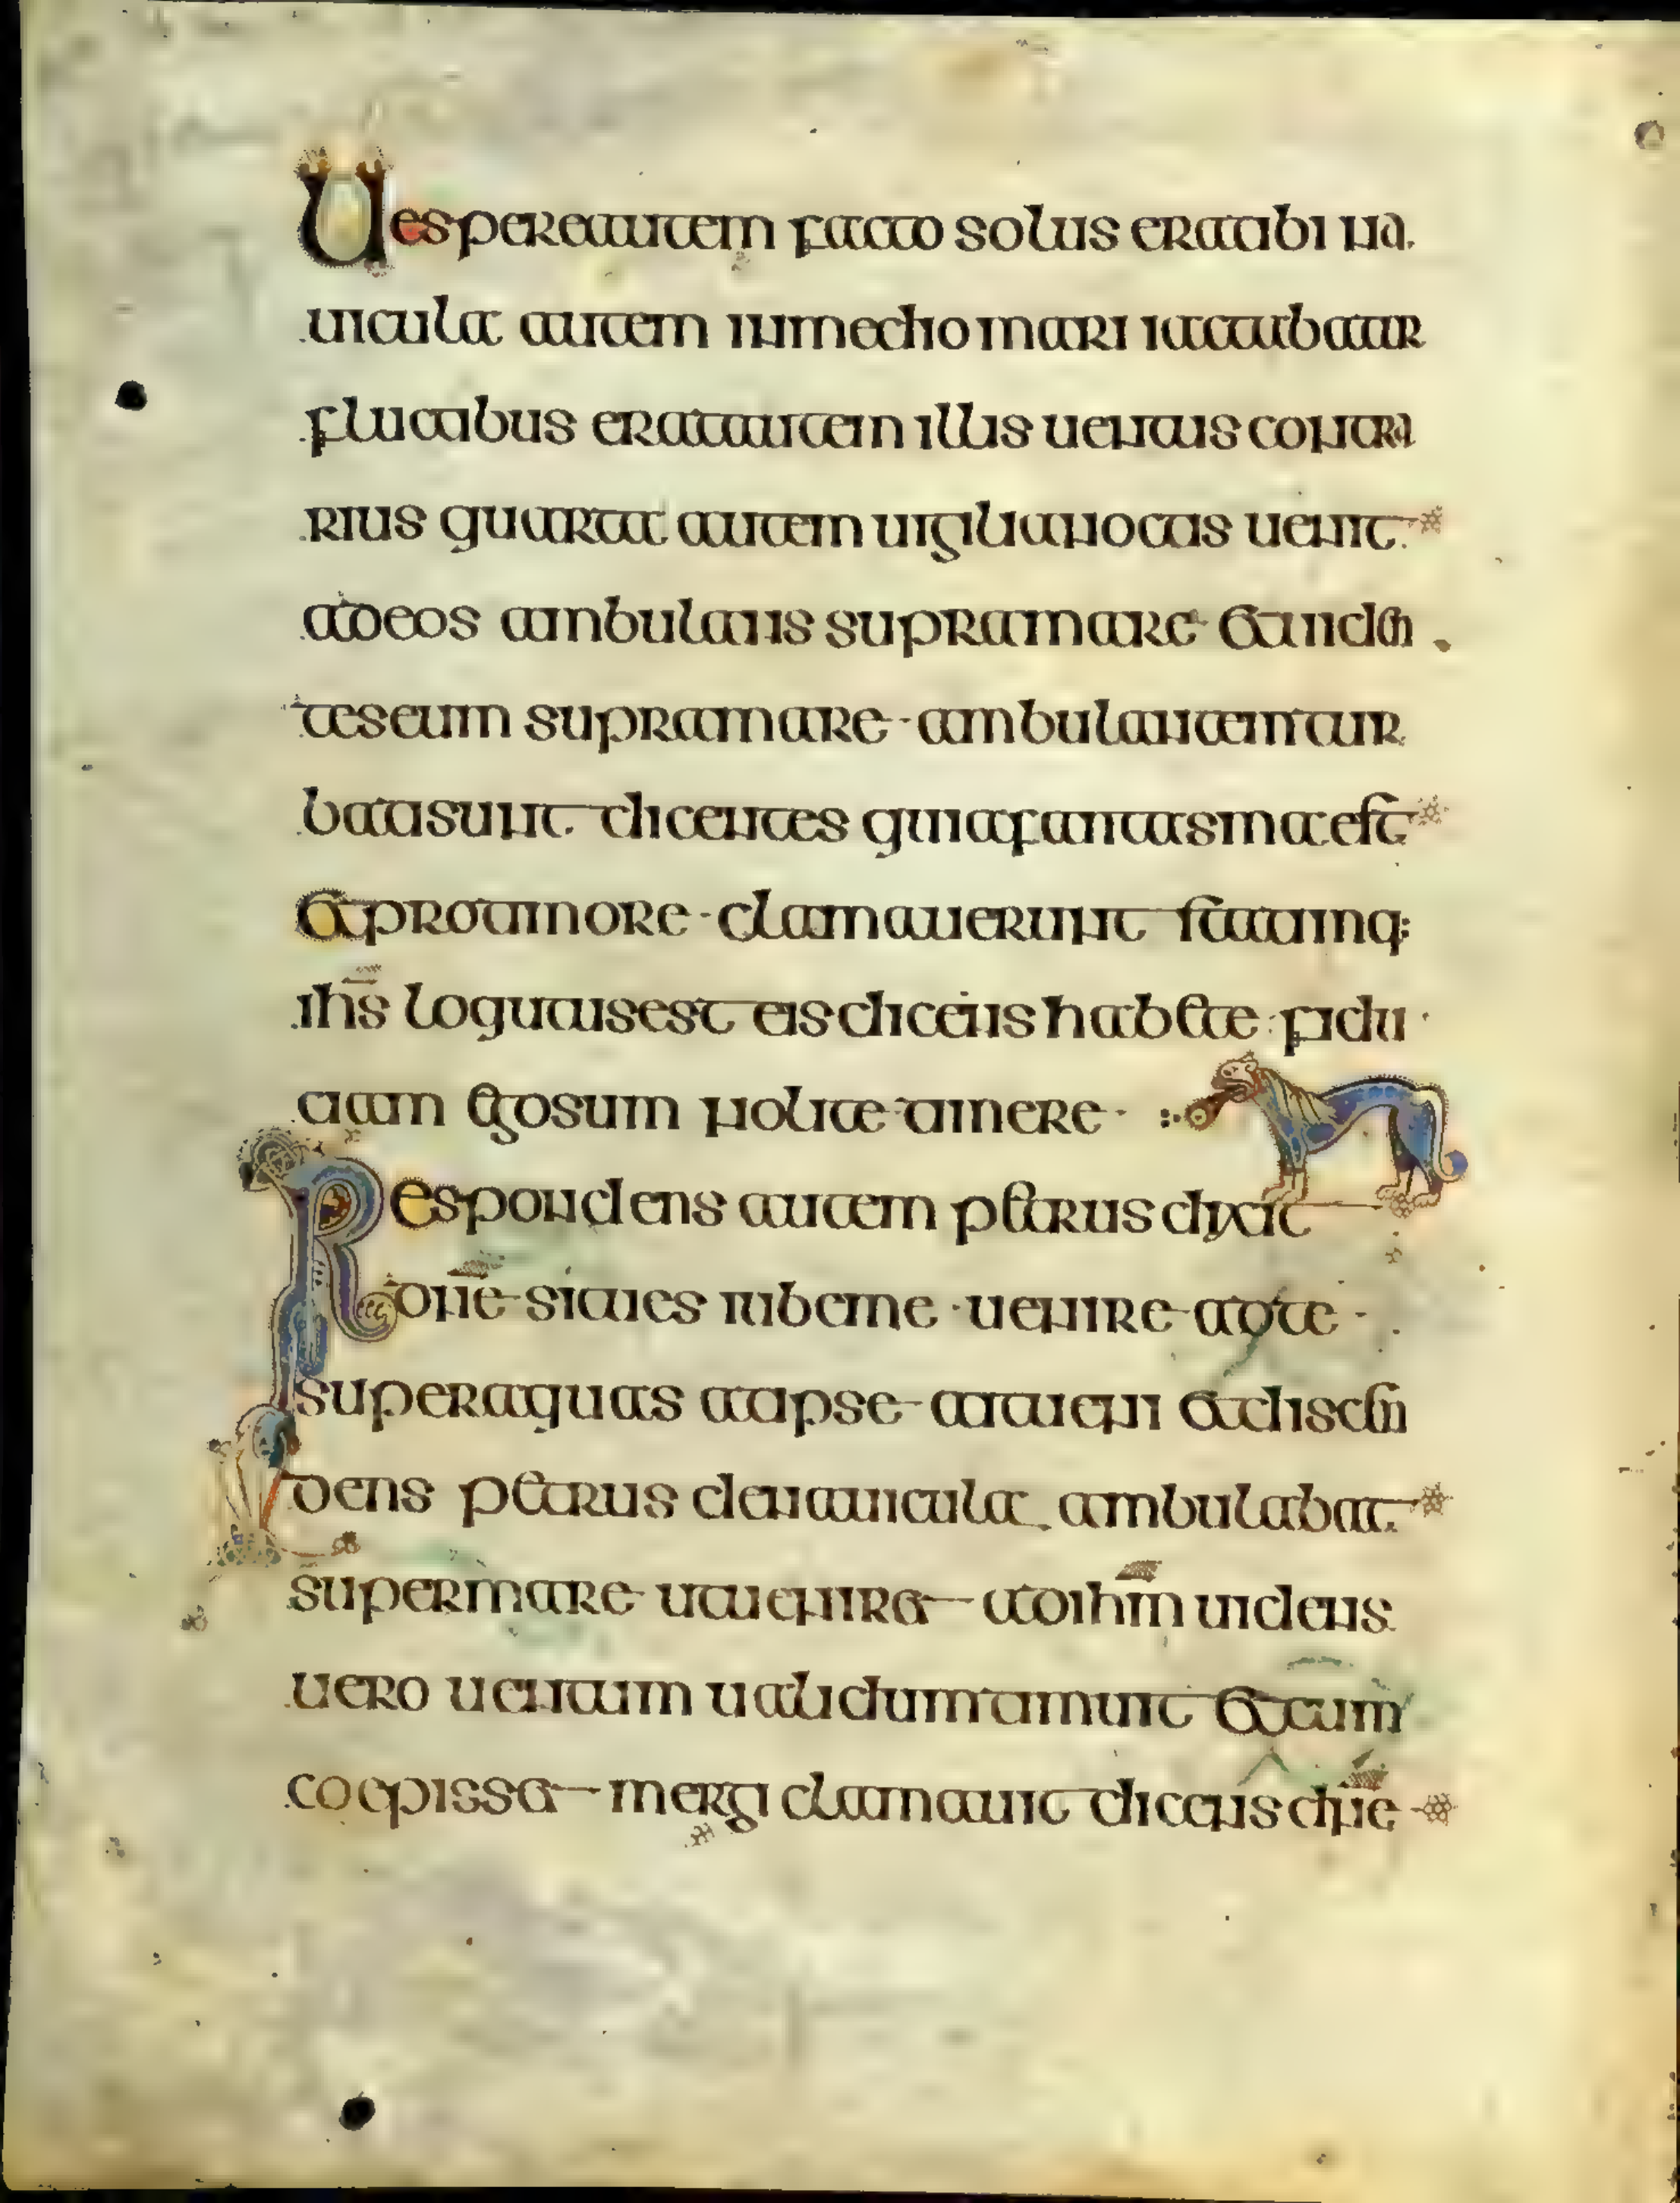 Uespere autem facto solus erat ibi na
uicula autem in medio mari iactabatur
fluctibus erat autem illis uentus contra
rius quarta autem uigilia noctis uenit
ad eos ambulans supra mare et uiden
tes eum supra mare ambulantem tur
bati sunt dicentes quia fantasma est
et prae timore clamauerunt statimq:
ihs locutus est eis dicens habete fidu
ciam ego sum nolite timere
Respondens autem petrus dixit
dne si tu es iube me uenire ad te
super aquas at ipse ait ueni et discen
dens petrus de nauicula ambulabat
super mare ut ueniret ad ihm uidens
uero uentum ualidum timuit et cum
coepisset mergi clamauit dicens dne